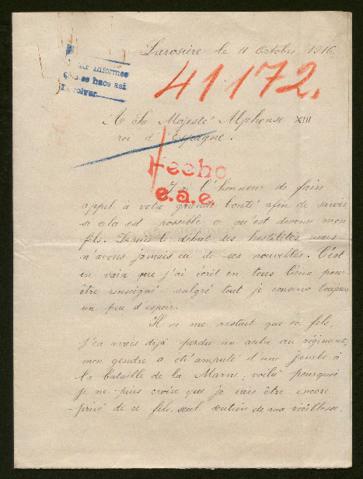 Larosière le 11 Octobre 1916.
41172.
A Sa Majesté Alphonse XIII
roi d'Espagne.
Hecho
e.a.e.
J'ai l'honneur de faire
appel à votre grande bonté afin de savoir
si cela est possible ce qu'est devenu mon
fils. Depuis le début des hostilités nous
n'avons jamais eu de ses nouvelles. C'est
en vain que j'ai écrit en tous lieux pour
être renseigné malgré tout je conserve toujours
un peu d'espoir.
Il ne me restait que ce fils,
J'en avais déjà perdu un autre au régiment,
mon gendre a été amputé d'une jambe à
la bataille de la Marne, voilà pourquoi
je ne puis croire que je vais être encore
privé de ce fils, seul soutien de ma vieillesse.